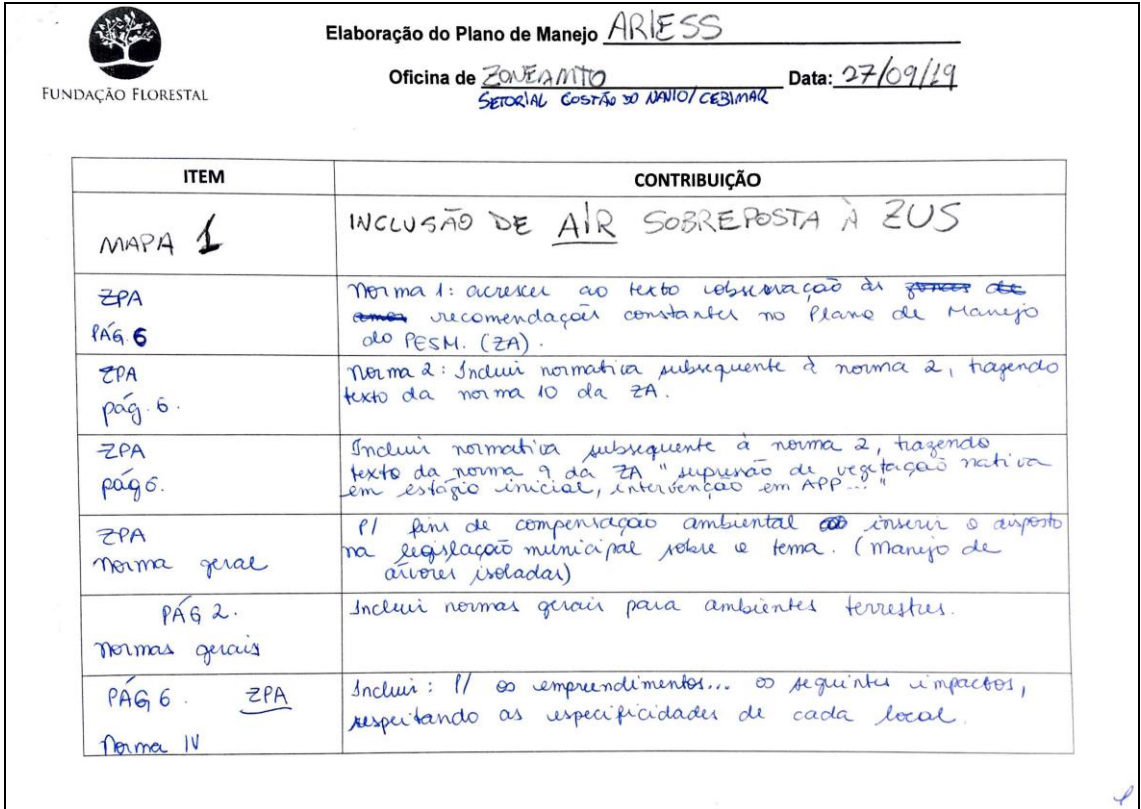 FUNDAÇÃO FLORESTAL
Elaboração do Plano de Manejo ARIESS
Oficina de ZONEAMTO Data: 27/09/19
SETORIAL COSTÃO DO NAVIO/CEBIMAR
ITEM CONTRIBUIÇÃO
MAPA 1 INCLUSÃO DE AIR SOBREPOSTA À ZUS
ZPA
PÁG. 6
Norma 1: acrescer ao texto observação às
recomendações constantes no Plano de Manejo
do PESM. (ZA).
ZPA
pág. 6.
Norma 2: Incluir normativa subsequente à norma 2, trazendo
texto da norma 10 da ZA.
ZPA
pág 6.
Incluir normativa subsequente à norma 2, trazendo
texto da norma 9 da ZA "supressão de vegetação nativa
em estágio inicial, intervenção em APP..."
ZPA
Norma geral
P/ fins de compensação ambiental inserir o disposto
na legislação municipal sobre o tema. (manejo de
árvores isoladas)
PÁG 2.
Normas gerais
Incluir normas gerais para ambientes terrestres.
PÁG 6. ZPA
Norma IV
Incluir: P/ os empreendimentos... os seguintes impactos,
respeitando as especificidades de cada local.